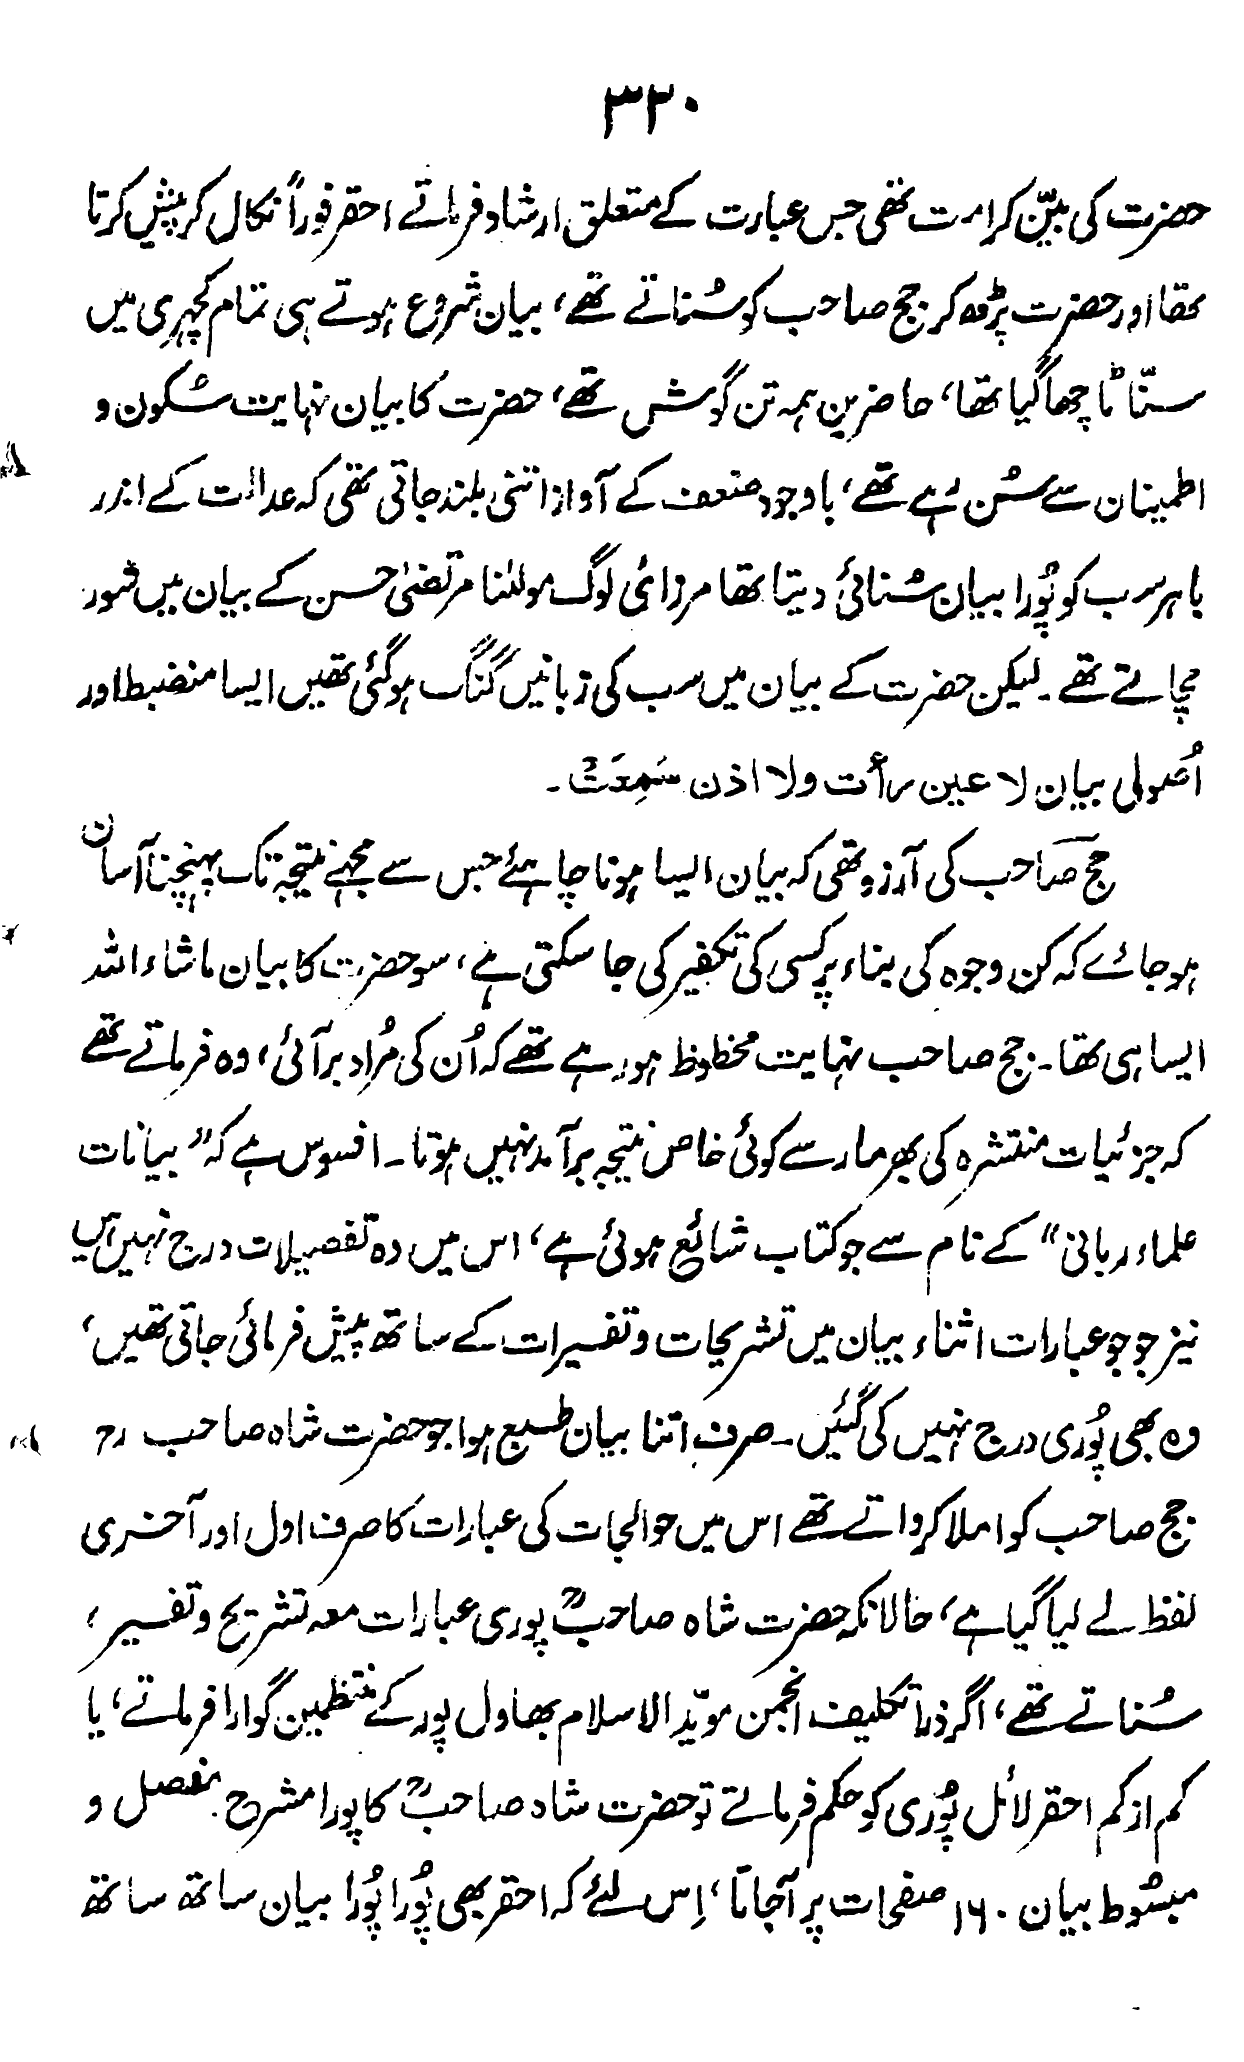 ۳۲۰
حضرت کی بیّن کرامت تھی جس عبارت کے متعلق ارشاد فرماتے احقر فوراً نکال کر پیش کرتا
تھا اور حضرت پڑھ کر جج صاحب کو سُناتے تھے، بیان شروع ہوتے ہی تمام کچہری میں
سنّاٹا چھا گیا تھا، حاضرین ہمہ تن گوش تھے، حضرت کا بیان نہایت سکون و
اطمینان سے سُن رہے تھے، باوجود ضعف کے آواز اتنی بلند جاتی تھی کہ عدالت کے اندر
باہر سب کو پُورا بیان سُنائی دیتا تھا مرزائی لوگ مولٰنا مرتضیٰ حسن کے بیان میں شور
مچاتے تھے۔ لیکن حضرت کے بیان میں سب کی زبانیں گنگ ہوگئی تھیں ایسا منضبط اور
اُصولی بیان لا عین رأت ولا اذن سَمِعَتْ۔
جج صاحب کی آرزو تھی کہ بیان ایسا ہونا چاہئے جس سے مجھے نتیجہ تک پہنچنا آسان
ہو جائے کہ کن وجوہ کی بناء پر کسی کی تکفیر کی جا سکتی ہے، سو حضرت کا بیان ماشاء اللہ
ایسا ہی تھا۔ جج صاحب نہایت محظوظ ہو رہے تھے کہ اُن کی مُراد بر آئی، وہ فرماتے تھے
کہ جزئیات منتشرہ کی بھرمار سے کوئی خاص نتیجہ برآمد نہیں ہوتا۔ افسوس ہے کہ "بیانات
علماء ربانی" کے نام سے جو کتاب شائع ہوئی ہے، اس میں وہ تفصیلات درج نہیں ہیں
نیز جو جو عبارات اثناء بیان میں تشریحات و تفسیرات کے ساتھ پیش فرمائی جاتی تھیں،
وہ بھی پُوری درج نہیں کی گئیں۔ صرف اتنا بیان طبع ہوا جو حضرت شاہ صاحب رح
جج صاحب کو املا کرواتے تھے اس میں حوالجات کی عبارات کا صرف اول اور آخری
لفظ لے لیا گیا ہے، حالانکہ حضرت شاہ صاحبؒ پوری عبارات معہ تشریح و تفسیر،
سُناتے تھے، اگر ذرا تکلیف انجمن مویّد الاسلام بھاول پور کے منتظمین گوارا فرماتے، یا
کم از کم احقر لائل پُوری کو حکم فرماتے تو حضرت شاہ صاحبؒ کا پورا مشرح مفصل و
مبسُوط بیان ۱۶۰ صفحات پر آجاتا، اِس لئے کہ احقر بھی پُورا پُورا بیان ساتھ ساتھ